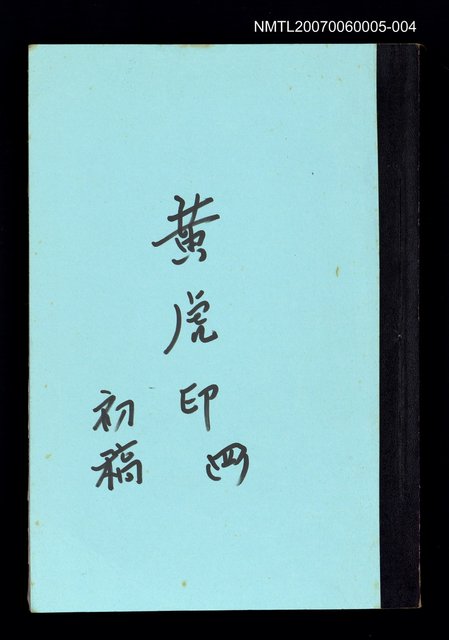 NMTL20070060005-004
黃虎印
四
初稿